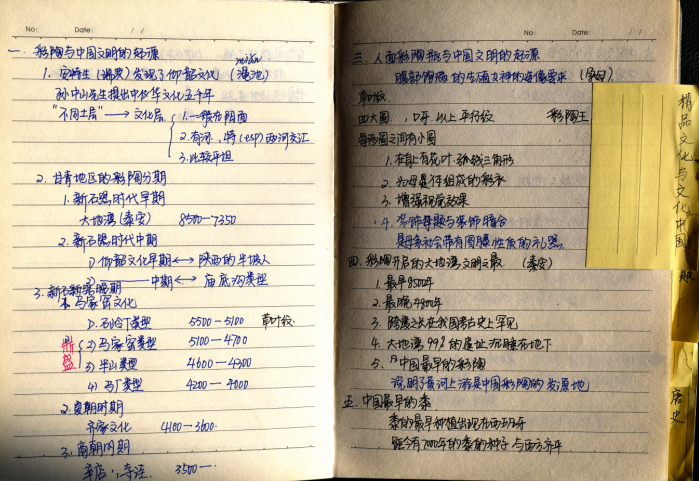 No:          Date:    /  /
一. 彩陶与中国文明的起源
mián
1. 安特生(瑞典)发现了仰韶文化(渑池)
孙中山先生提出中华文化五千年
"不同土层"→文化层
1.一般在阴面
2.有河、特(七り)两河交汇
3.比较平坦
2. 甘青地区的彩陶分期
1. 新石器时代早期
大地湾(秦安) 8500—7350
2. 新石器时代中期
1) 仰韶文化早期 ←→ 陕西的半坡人
2) —— 中期 ←→ 庙底沟类型
3. 新石器晚期
1. 马家窑文化
1). 石岭下类型 5500—5100 草叶纹
鼎盛
2) 马家窑类型 5100—4700
3) 半山类型 4600—4300
4) 马厂类型 4200—4000
2. 夏朝时期
齐家文化 4100—3600
3. 商朝时期
辛店、寺洼 3500—
No:          Date:    /  /
三. 人面彩陶瓶与中国文明的起源
腹部陶病的生殖女神的造像要求
草叶纹
四大圆、口哥以上平行纹 彩陶王
每两圆之间有小圆
1. 在身上有花叶、弧线三角形
2. 为母是件组成的彩衣
3. 增强视觉效果
4. 装饰母题与装饰暗合
是母系社会带有图腾性质的礼器.
四. 彩陶开启的大地湾文明之最 (秦安)
1. 最早8500年
2. 最晚4800年
3. 跨度之长在我国考古史上罕见
4. 大地湾99%的遗址沉睡在地下
5. 中国最早的彩陶
说明了黄河上游是中国彩陶的发源地
五. 中国最早的黍
黍的最早种植出现在西亚
距今有7000年的黍的种子与西方齐平
精品文化与文化中国
唐史